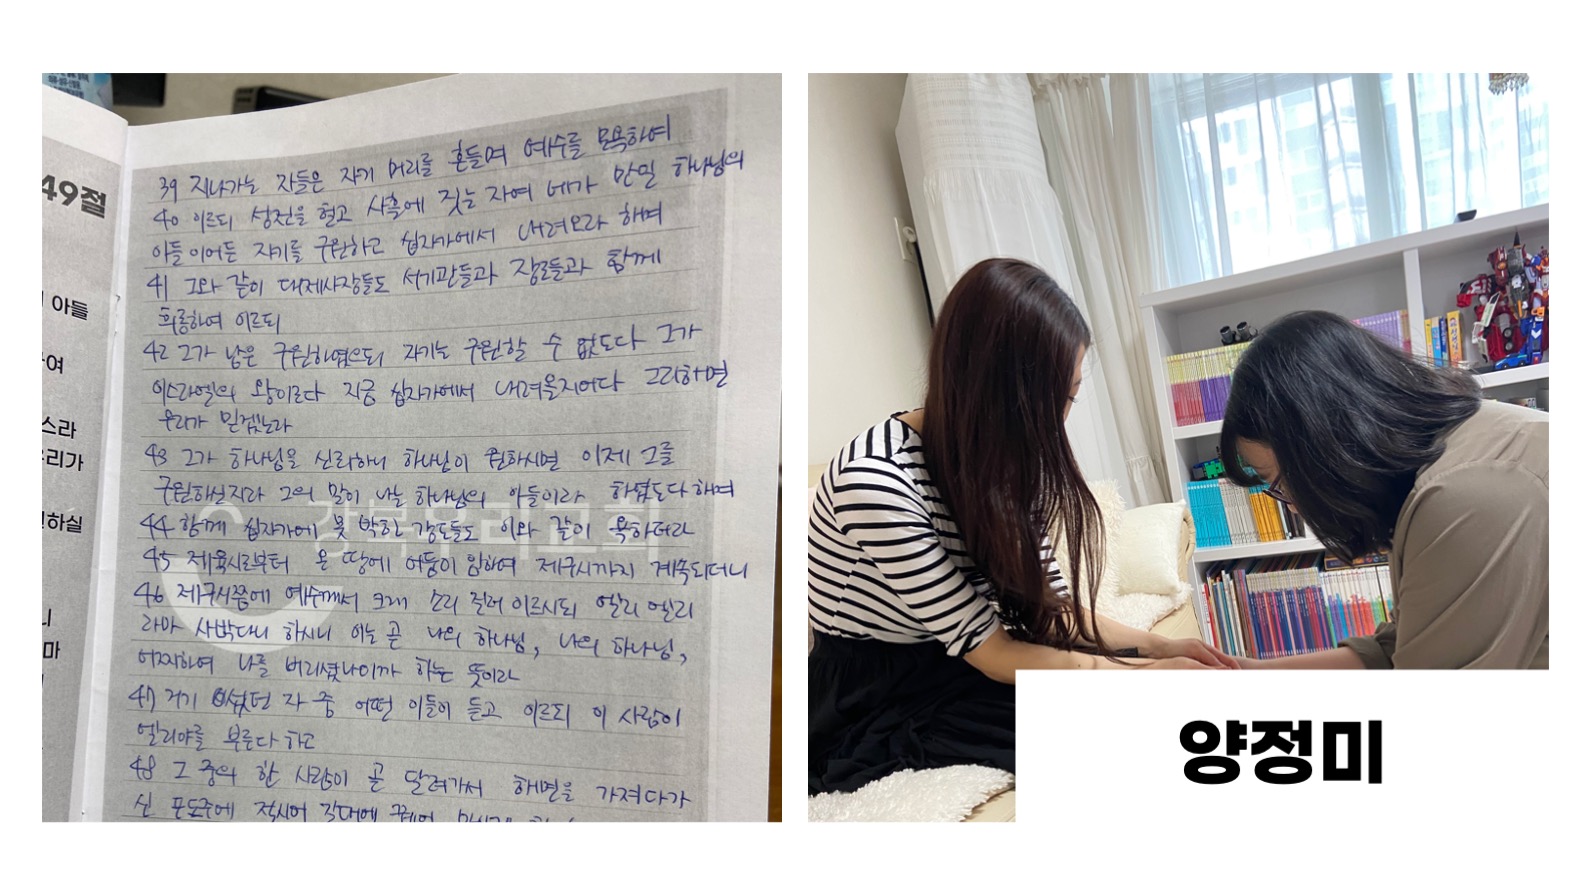 49절
아들
여
스라
우리가
하실
니
마
39 지나가는 자들은 자기 머리를 흔들며 예수를 모욕하여
40 이르되 성전을 헐고 사흘에 짓는 자여 네가 만일 하나님의
아들이어든 자기를 구원하고 십자가에서 내려오라 하며
41 그와 같이 대제사장들도 서기관들과 장로들과 함께
희롱하여 이르되
42 그가 남은 구원하였으되 자기는 구원할 수 없도다 그가
이스라엘의 왕이로다 지금 십자가에서 내려올지어다 그리하면
우리가 믿겠노라
43 그가 하나님을 신뢰하니 하나님이 원하시면 이제 그를
구원하실지라 그의 말이 나는 하나님의 아들이라 하였도다 하며
44 함께 십자가에 못 박힌 강도들도 이와 같이 욕하더라
45 제육시로부터 온 땅에 어둠이 임하여 제구시까지 계속되더니
46 제구시쯤에 예수께서 크게 소리 질러 이르시되 엘리 엘리
라마 사박다니 하시니 이는 곧 나의 하나님, 나의 하나님,
어찌하여 나를 버리셨나이까 하는 뜻이라
47 거기 섰던 자 중 어떤 이들이 듣고 이르되 이 사람이
엘리야를 부른다 하고
48 그 중의 한 사람이 곧 달려가서 해면을 가져다가
신 포도주에 적시어 갈대에 꿰어
양정미